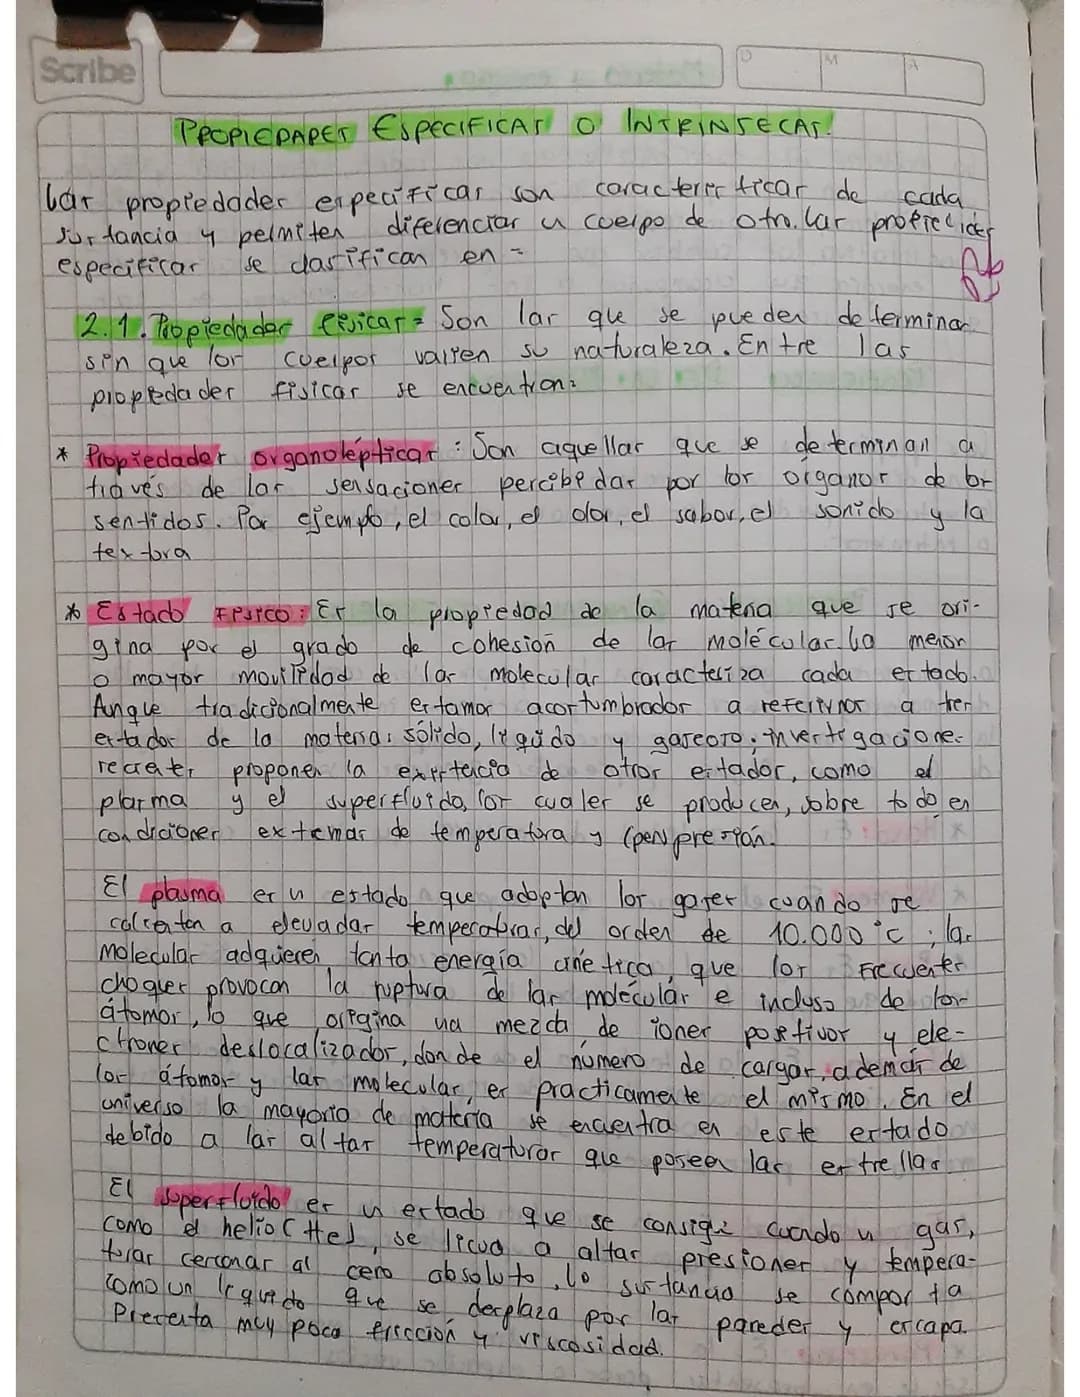 Scribe
D M A
PROPIEDADES ESPECIFICAS O INTRINSECAS.
Las propiedades especificas son caracteristicas de cada
sustancia y permiten diferenciar u cuerpo de otro. las propiedades
especificas se clasifican en =
2.1. Propiedades fisicas = Son las que se pueden determinar
sin que los cuerpos varien su naturaleza. Entre las
propiedades fisicas se encuentran:
* Propiedades organolépticas : Son aquellas que se determinan a
través de las sensaciones percibidas por los órganos de los
sentidos. Por ejemplo, el color, el olor, el sabor, el sonido y la
textura
* Estado FISICO : Es la propiedad de la materia que se ori-
gina por el grado de cohesión de las moléculas. La menor
o mayor movilidad de las moleculas caracteriza cada estado.
Aunque tradicionalmente estamos acostumbrados a referirnos a tres
estados de la materia: sólido, liquido y gaseoso; investigaciones
recientes proponen la existencia de otros estados, como el
plasma y el superfluido, los cuales se producen, sobre todo en
condiciones extemas de temperatura y (pen presión.
El plasma es u estado que adoptan los gases cuando se
calientan a elevadas temperaturas, del orden de 10.000 °C ; las
moleculas adquieren tanta energía cinetica, que los Frecuentes
choques provocan la ruptura de las moléculas e incluso de los
átomos, lo que origina una mezcla de iones positivos y ele-
ctrones deslocalizados, donde el número de cargas, además de
los átomos y las moleculas, es practicamente el mismo. En el
universo la mayoria de materia se encuentra en este estado
debido a las altas temperaturas que poseen las estrellas
El superfluido es u estado que se consigue cuando u gas,
como el helio (He), se licua a altas presiones y tempera-
turas cercanas al cero absoluto, la sustancia se comporta
como un liquido que se desplaza por las paredes y escapa.
Presenta muy poca fricción y viscosidad.